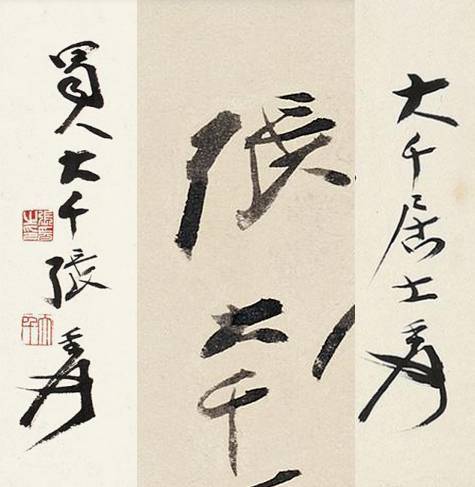 蜀人大千張爰
張大千
大千居士爰